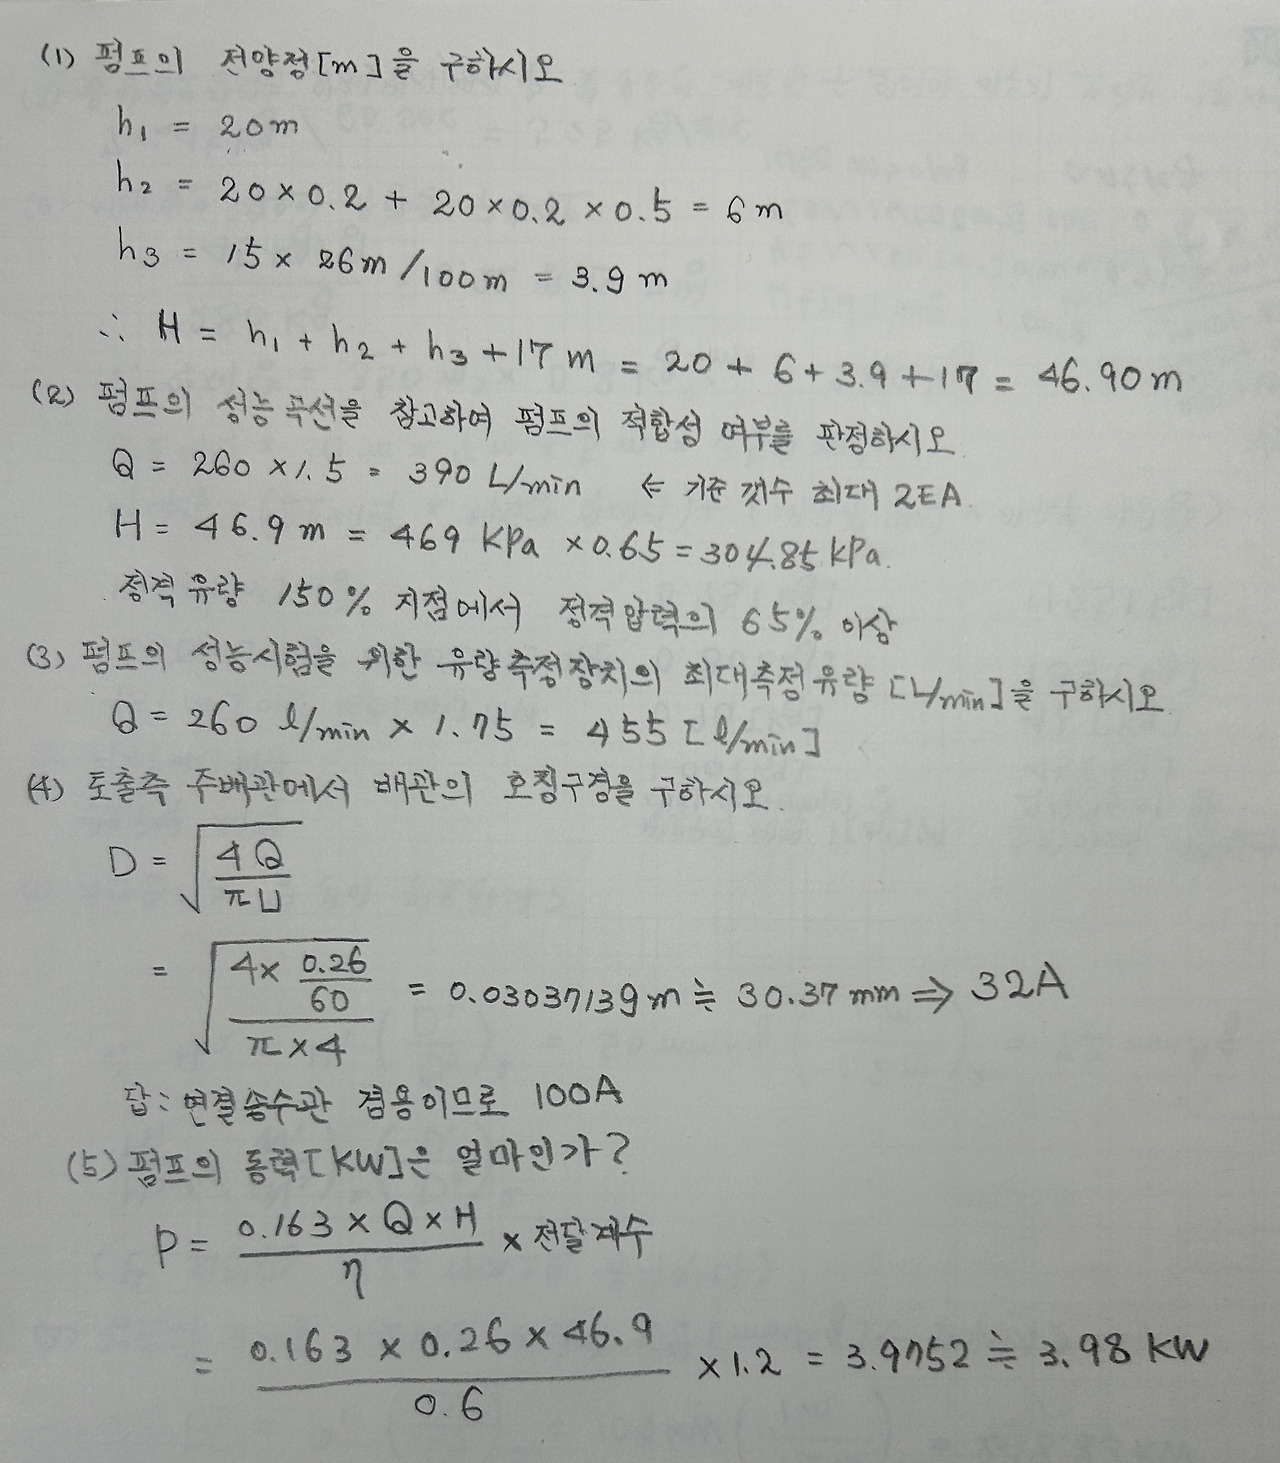 (1) 펌프의 전양정[m]을 구하시오
h₁ = 20m
h₂ = 20×0.2 + 20×0.2×0.5 = 6m
h₃ = 15× 26m/100m = 3.9m
∴ H = h₁ + h₂ + h₃ +17m = 20 + 6+3.9+17 = 46.90m
(2) 펌프의 성능곡선을 참고하여 펌프의 적합성 여부를 판정하시오.
Q = 260 ×1.5 = 390 L/min ← 기준 갯수 최대 2EA.
H = 46.9m = 469 KPa ×0.65 = 304.85 kPa.
정격유량 150% 지점에서 정격압력의 65% 이상
(3) 펌프의 성능시험을 위한 유량측정장치의 최대측정유량[L/min]을 구하시오.
Q = 260 ℓ/min × 1.75 = 455 [ℓ/min]
(4) 토출측 주배관에서 배관의 호칭구경을 구하시오.
D = √(4Q/πU)
= √((4× 0.26/60)/(π×4)) = 0.03037139m ≒ 30.37mm ⇒ 32A
답: 연결송수관 겸용이므로 100A
(5) 펌프의 동력[KW]은 얼마인가?
P = (0.163×Q×H)/η × 전달계수
= (0.163 × 0.26 × 46.9)/0.6 ×1.2 = 3.9752 ≒ 3.98 KW